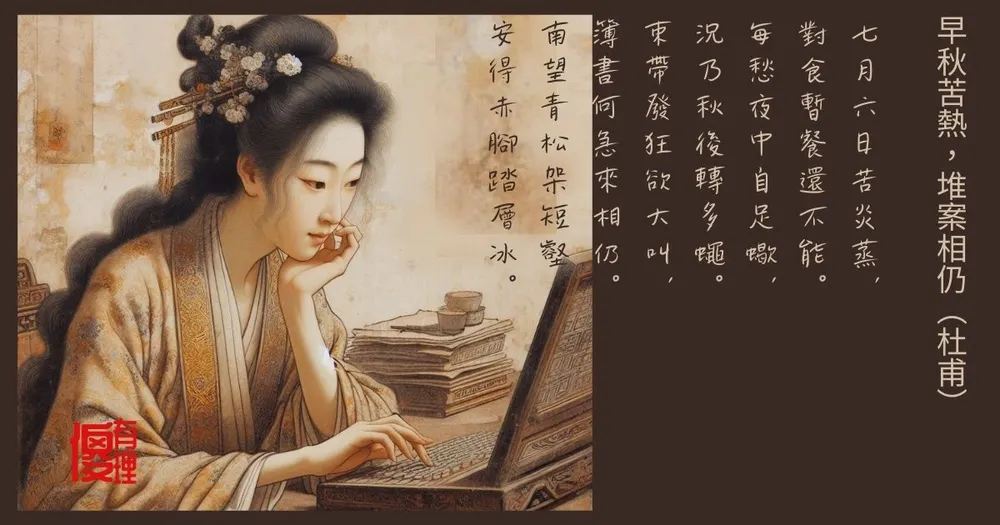 早秋苦熱，堆案相仍（杜甫）
七月六日苦炎蒸，
對食暫餐還不能。
每愁夜中自足蠍，
況乃秋後轉多蠅。
束帶發狂欲大叫，
簿書何急來相仍。
南望青松架短壑
安得赤腳踏層冰。
有理